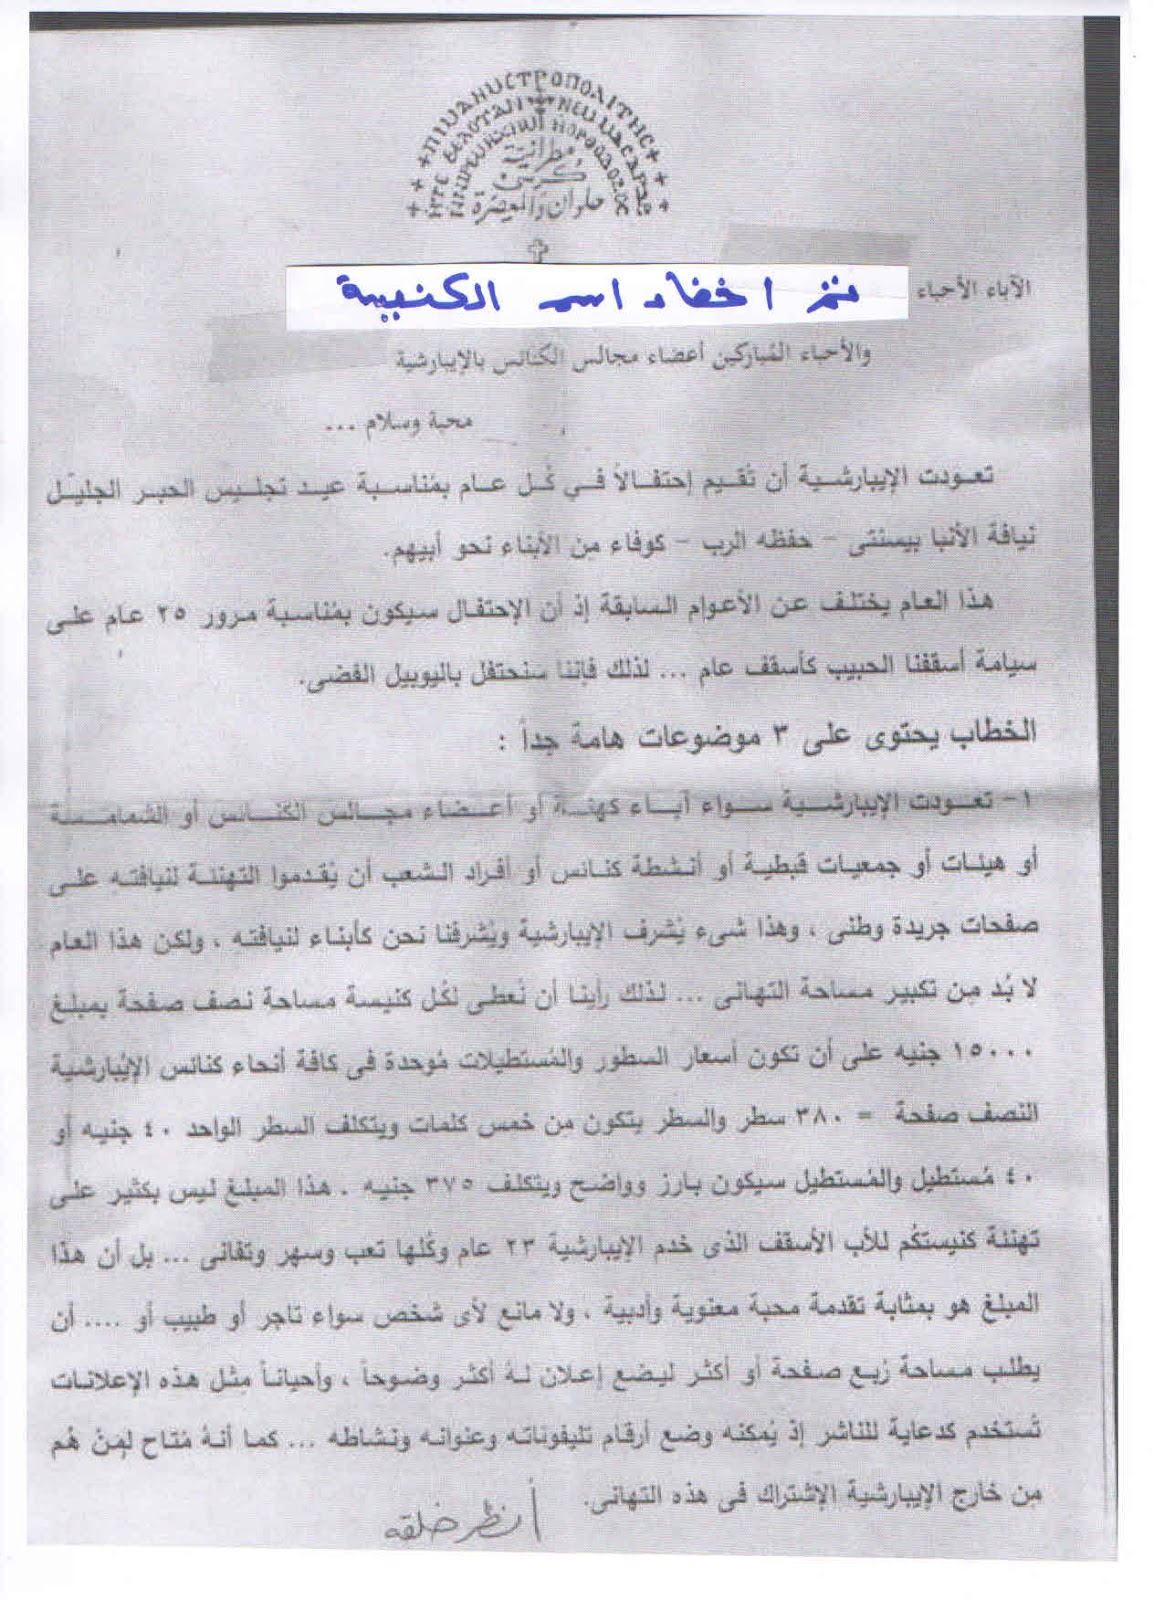 مطرانية
كرسى
حلوان والمعصرة
الآباء الأحباء
تم اخفاء اسم الكنيسة
والأحباء المُباركين أعضاء مجالس الكنائس بالإيبارشية
محبة وسلام ...
تعودت الإيبارشية أن تُقيم إحتفالاً في كُل عام بمُناسبة عيد تجليس الحبر الجليل
نيافة الأنبا بيسنتى - حفظه الرب - كوفاء من الأبناء نحو أبيهم.
هذا العام يختلف عن الأعوام السابقة إذ أن الإحتفال سيكون بمُناسبة مرور ٢٥ عام على
سيامة أسقفنا الحبيب كأسقف عام ... لذلك فإننا سنحتفل باليوبيل الفضى.
الخطاب يحتوى على ٣ موضوعات هامة جداً :
١- تعودت الإيبارشية سواء آباء كهنة أو أعضاء مجالس الكنائس أو الشمامسة
أو هيئات أو جمعيات قبطية أو أنشطة كنائس أو أفراد الشعب أن يُقدموا التهنئة لنيافته على
صفحات جريدة وطنى ، وهذا شىء يُشرف الإيبارشية ويُشرفنا نحن كأبناء لنيافته ، ولكن هذا العام
لا بُد مِن تكبير مساحة التهانى ... لذلك رأينا أن نُعطى لكُل كنيسة مساحة نصف صفحة بمبلغ
١٥٠٠٠ جنيه على أن تكون أسعار السطور والمُستطيلات مُوحدة فى كافة أنحاء كنائس الإيبارشية
النصف صفحة = ٣٨٠ سطر والسطر يتكون من خمس كلمات ويتكلف السطر الواحد ٤٠ جنيه أو
٤٠ مُستطيل والمُستطيل سيكون بارز وواضح ويتكلف ٣٧٥ جنيه . هذا المبلغ ليس بكثير على
تهنئة كنيستكُم للأب الأسقف الذى خدم الإيبارشية ٢٣ عام وكُلها تعب وسهر وتفانى ... بل أن هذا
المبلغ هو بمثابة تقدمة محبة معنوية وأدبية ، ولا مانع لأى شخص سواء تاجر أو طبيب أو .... أن
يطلب مساحة رُبع صفحة أو أكثر ليضع إعلان لهُ أكثر وضوحاً ، وأحياناً مِثل هذه الإعلانات
تُستخدم كدعاية للناشر إذ يُمكنه وضع أرقام تليفوناته وعنوانه ونشاطه ... كما أنهُ مُتاح لِمنْ هُم
مِن خارج الإيبارشية الإشتراك فى هذه التهانى.
أنظر خلفه